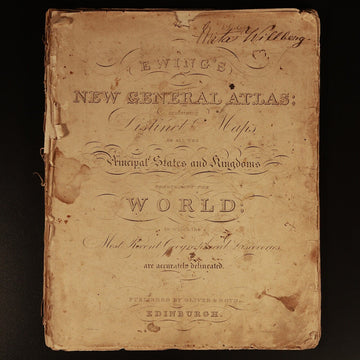 EWING'S
NEW GENERAL ATLAS:
Distinct Maps
OF ALL THE
Principal States and Kingdoms
THROUGHOUT THE
WORLD:
IN WHICH THE
Most Recent Geographical Discoveries
are accurately delineated.
PUBLISHED BY OLIVER & BOYD,
EDINBURGH.